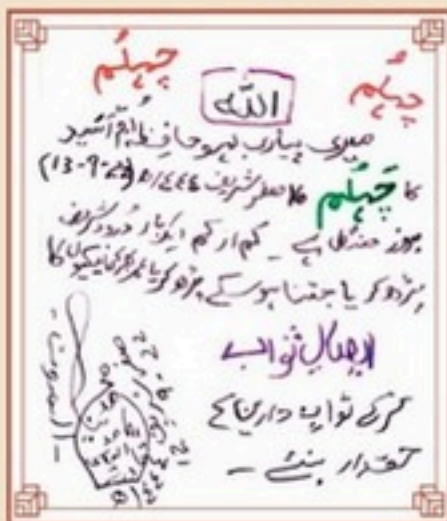 چہلُم چہلُم
اللہ
میری پیاری بہو حافظہ اُمِّ اُسید
کا چَہلُم ۱۶ صفر شریف ۱۴۴۴ھ (13-9-22)
بروز منگل ہے ۔ کم از کم ایکبار دُرود شریف
پڑھ کر یا جتنا ہو سکے پڑھ کر یا عمر بھر کی نیکیوں کا
ایصالِ ثواب
کر کے ثوابِ دارین کے
حقدار بنئے ۔